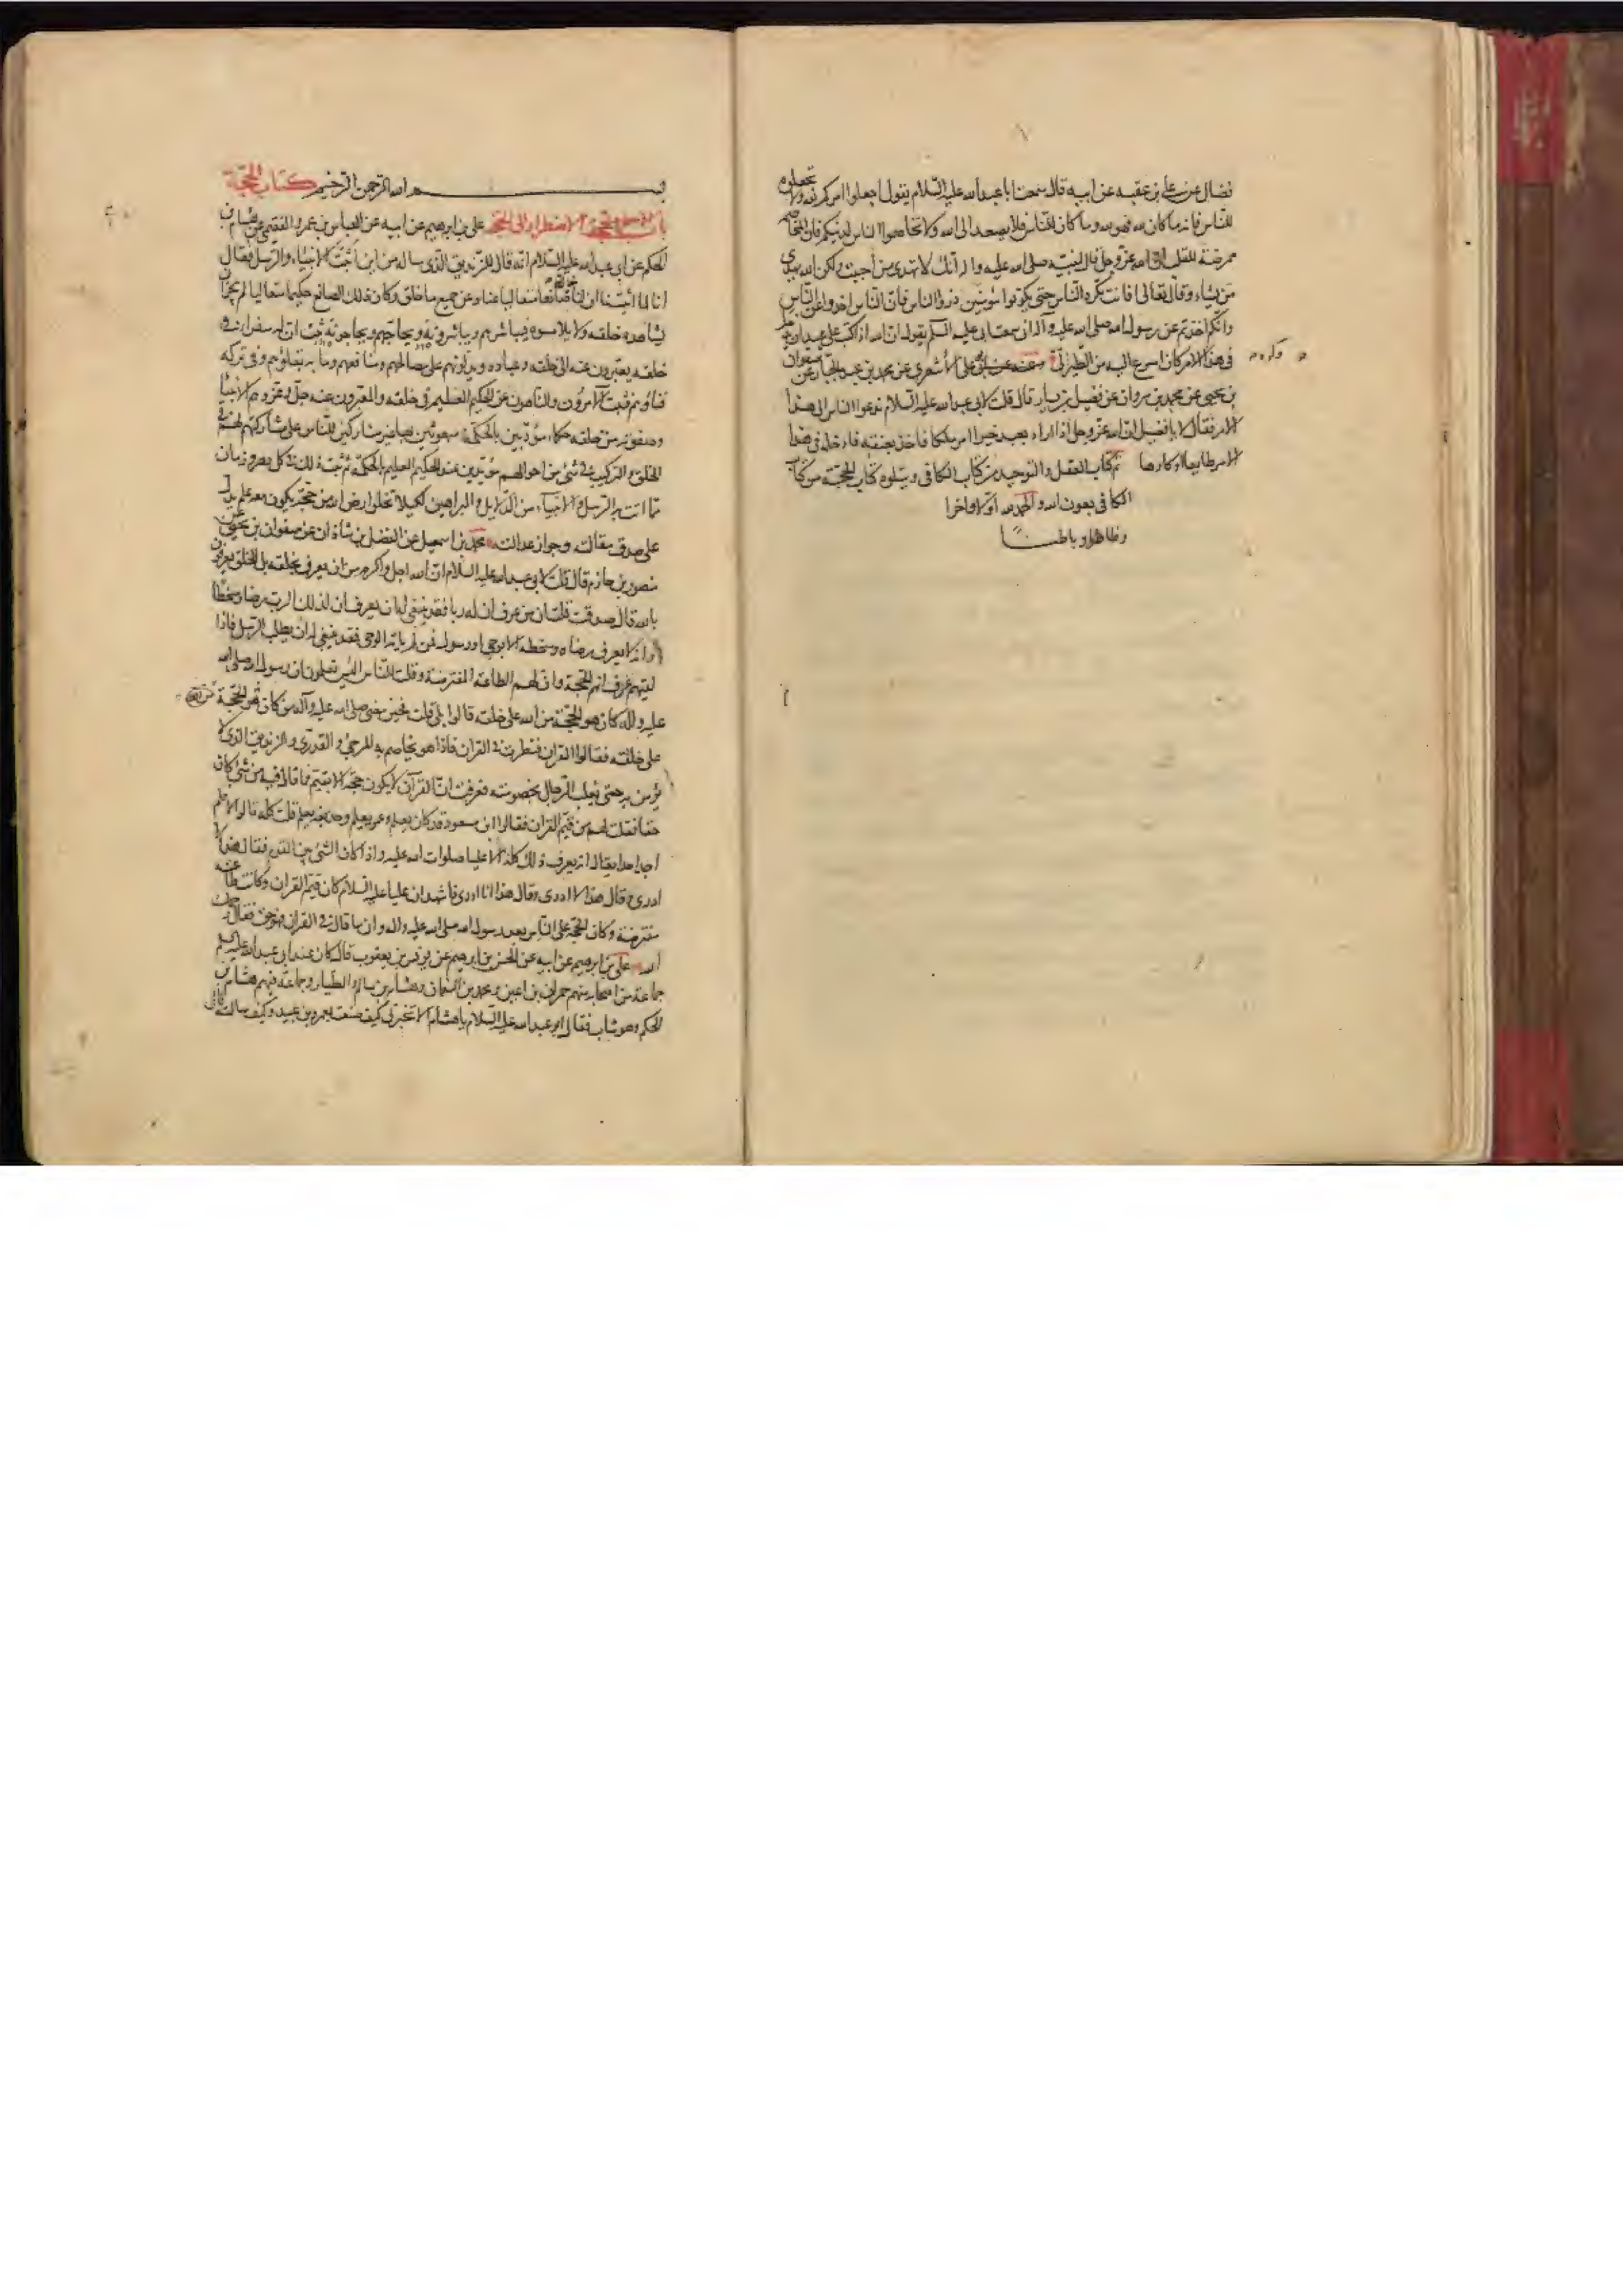 فضال عن علي بن عقبه عن ابيه قال سمعت ابا عبد الله عليه السلام يقول اجعلوا امركم لله ولا تجعلوه
للناس فانه ما كان لله فهو لله وما كان للناس فلا يصعد الى الله ولا تخاصموا الناس لدينكم فان المخاصمة
ممرضة للقلب ان الله عز وجل قال لنبيه صلى الله عليه واله انك لا تهدى من احببت ولكن الله يهدي
من يشاء وقال تعالى افانت تكره الناس حتى يكونوا مؤمنين ذروا الناس فان الناس اخذوا عن الناس
وانكم اخذتم عن رسول الله صلى الله عليه وآله انى سمعت ابى عليه السلم يقول ان الله اذا كتب على عبد ان يدخل
فى هذا الامر كان اسرع اليه من الطير الى وكره
ابى على الأشعرى عن محمد بن عبد الجبار عن صفوان
بن يحيى عن محمد بن مروان عن فضيل بن يسار قال قلت لابى عبد الله عليه السلام ندعوا الناس الى هذا
الامر فقال لا يا فضيل ان الله عز وجل اذا اراد بعبد خيرا امر ملكا فاخذ بعنقه فادخله فى هذا
الامر طايعا او كارها تم كتاب العقل والتوحيد من كتاب الكافى ويتلوه كتاب الحجة من كتاب
الكافى بعون الله والحمد لله اولا واخرا
وظاهرا وباطنا
بسم الله الرحمن الرحيم كتاب الحجة
باب الاضطرار الى الحجة على بن ابرهيم عن ابيه عن العباس بن عمرو الفقيمى عن هشام بن
الحكم عن ابى عبد الله عليه السلام انه قال للزنديق الذى ساله من اين اثبت الانبياء والرسل فقال
انا لما اثبتنا ان لنا خالقا صانعا متعاليا عنا وعن جميع ما خلق وكان ذلك الصانع حكيما متعاليا لم يجز ان
يشاهده خلقه ولا يلامسوه فيباشرهم ويباشروه ويحاجهم ويحاجوه ثبت ان له سفراء فى
خلقه يعبرون عنه الى خلقه وعباده ويدلونهم على مصالحهم ومنافعهم وما به بقاؤهم وفى تركه
فناؤهم فثبت الآمرون والناهون عن الحكيم العليم فى خلقه والمعبرون عنه جل وعز وهم الانبياء
وصفوته من خلقه حكماء مؤدبين بالحكمة مبعوثين بها غير مشاركين للناس على مشاركتهم لهم فى
الخلق والتركيب فى شئ من احوالهم مؤيدين عند الحكيم العليم بالحكمة ثم ثبت ذلك فى كل دهر وزمان
مما اتت به الرسل والانبياء من الدلايل والبراهين لكيلا تخلوا ارض الله من حجة يكون معه علم يدل
على صدق مقالته وجواز عدالته محمد بن اسمعيل عن الفضل بن شاذان عن صفوان بن يحيى عن
منصور بن حازم قال قلت لابى عبد الله عليه السلام ان الله اجل واكرم من ان يعرف بخلقه بل الخلق يعرفون
بالله قال صدقت قلت ان من عرف ان له ربا فقد ينبغى له ان يعرف ان لذلك الرب رضا وسخطا
وانه لا يعرف رضاه وسخطه الا بوحى او رسول فمن لم ياته الوحى فقد ينبغى له ان يطلب الرسل فاذا
لقيهم عرف انهم الحجة وان لهم الطاعة المفترضة وقلت للناس اليس تعلمون ان رسول الله صلى الله
عليه واله كان هو الحجة من الله على خلقه قالوا بلى قلت فحين مضى صلى الله عليه وآله من كان هو الحجة
على خلقه فقالوا القران فنظرت فى القران فاذا هو يخاصم به المرجئ والقدرى والزنديق الذى لا
يؤمن به حتى يغلب الرجال بخصومته فعرفت ان القرآن لا يكون حجة الا بقيم فما قال فيه من شئ كان
حقا فقلت لهم من قيم القران فقالوا ابن مسعود قد كان يعلم وعمر يعلم وحذيفه يعلم قلت كله قالوا لا فلم
اجد احدا يقال انه يعرف ذلك كله الا عليا صلوات الله عليه واذا كان الشئ بين القوم فقال هذا لا
ادرى وقال هذا لا ادرى وقال هذا انا ادرى فاشهد ان عليا عليه السلام كان قيم القران وكانت طاعته
مفترضة وكان الحجة على الناس بعد رسول الله صلى الله عليه واله وان ما قال فى القران فهو حق فقال رحمك
الله على بن ابرهيم عن ابيه عن الحسن بن ابرهيم عن يونس بن يعقوب قال كان عند ابى عبد الله عليه السلم
جماعة من اصحابه منهم حمران بن اعين ومحمد بن النعمان وهشام بن سالم والطيار وجماعة فيهم هشام بن
الحكم وهو شاب فقال ابو عبد الله عليه السلام يا هشام الا تخبرنى كيف صنعت بعمرو بن عبيد وكيف سالته قال